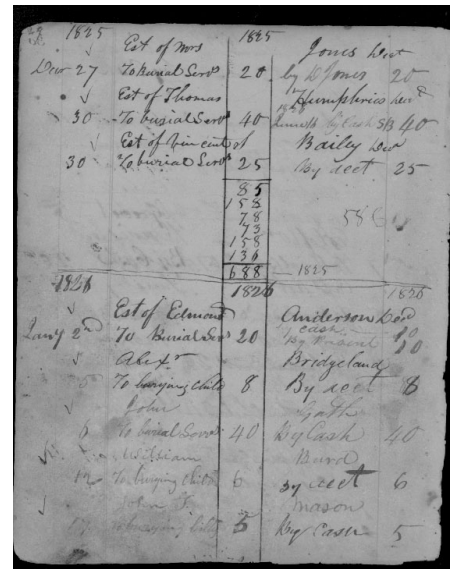 1825 1825
Est of Mrs Jones Decd
Decr 27 To Burial Servs 20 by D Jones 20
Est of Thomas Humphries Decd
30 To burial Servs 40 by Cash 40
Est of Vincent Bailey Decd
30 To burial Servs 25 By acct 25
85
158
78
73
158
136
688 1825
1826 1826 1826
Est of Edmond Anderson Decd
by cash 10
Jany 2nd To Burial Servs 20 By 10
Alexr Bridgeland
5 To burying Child 8 By acct 8
John Gath
6 To burial Servs 40 By Cash 40
William Burd
12 To burying Child 6 By acct 6
John Mason
17 To burying Child 5 By Cash 5